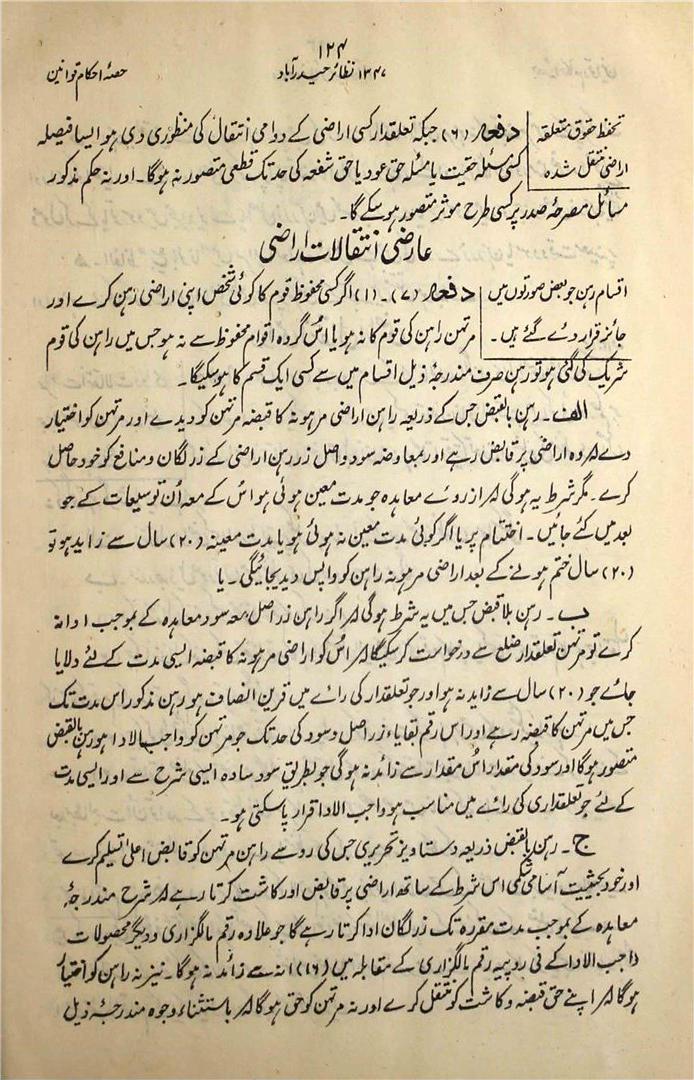 ۱۲۴
۱۳۴۷ نظائر حیدرآباد
حصۂ احکام قوانین
تحفظ حقوق متعلقہ
اراضی منتقل شدہ
دفعہ (۶) جبکہ تعلقدار کسی اراضی کے دوامی انتقال کی منظوری دی ہو ایسا فیصلہ
کسی مسئلہ حقیت یا مسئلہ حق عود یا حق شفعہ کی حد تک قطعی متصور نہ ہوگا۔ اور نہ حکم مذکور
مسائل مصرحۂ صدر پر کسی طرح موثر متصور ہو سکے گا۔
عارضی انتقالات اراضی
اقسام رہن جو بعض صورتوں میں
جائز قرار دے گئے ہیں۔
دفعہ (۷)۔ (۱) اگر کسی محفوظ قوم کا کوئی شخص اپنی اراضی رہن کرے اور
مرتہن راہن کی قوم کا نہ ہو یا اُس گروہ اقوام محفوظ سے نہ ہو جس میں راہن کی قوم
شریک کی گئی ہو تو رہن صرف مندرجۂ ذیل اقسام میں سے کسی ایک قسم کا ہو سکیگا۔
الف۔ رہن بالقبض جس کے ذریعہ راہن اراضی مرہونہ کا قبضہ مرتہن کو دیدے اور مرتہن کو اختیار
دے کہ وہ اراضی پر قابض رہے اور بمعاوضہ سود و اصل زر رہن اراضی کے زر لگان و منافع کو خود حاصل
کرے۔ مگر شرط یہ ہوگی کہ از روے معاہدہ جو مدت معین ہوئی ہو اس کے معہ اُن توسیعات کے جو
بعد میں کئے جائیں۔ اختتام پر یا اگر کوئی مدت معین نہ ہوئی ہو یا مدت معینہ (۲۰) سال سے زاید ہو تو
(۲۰) سال ختم ہونے کے بعد اراضی مرہونہ راہن کو واپس دیدیجائیگی۔ یا
ب۔ رہن بلا قبض جس میں یہ شرط ہوگی کہ اگر راہن زر اصل معہ سود معاہدہ کے بموجب ادا نہ
کرے تو مرتہن تعلقدار ضلع سے درخواست کر سکیگا کہ اس کو اراضی مرہونہ کا قبضہ ایسی مدت کے لئے دلایا
جائے جو (۲۰) سال سے زاید نہ ہو اور جو تعلقدار کی رائے میں قرین انصاف ہو رہن مذکور اس مدت تک
جس میں مرتہن کا قبضہ رہے اور اس رقم بقایاء زر اصل و سود کی حد تک جو مرتہن کو واجب الادا ہو رہن بالقبض
متصور ہوگا اور سود کی مقدار اُس مقدار سے زائد نہ ہوگی جو بطریق سود سادہ ایسی شرح سے اور ایسی مدت
کے لئے جو تعلقداری کی رائے میں مناسب ہو واجب الادا قرار پا سکتی ہو۔
ج۔ رہن بالقبض ذریعہ دستاویز تحریری جس کی رو سے راہن مرتہن کو قابض اعلیٰ تسلیم کرے
اور خود بحیثیت آسامی شکمی اس شرط کے ساتھ اراضی پر قابض اور کاشت کرتا رہے کہ شرح مندرجۂ
معاہدہ کے بموجب مدت مقررہ تک زر لگان ادا کرتا رہے گا جو علاوہ رقم مالگزاری و دیگر محصولات
واجب الادا کے فی روپیہ رقم مالگزاری کے مقابلہ میں (۱۶) آنہ سے زائد نہ ہوگا۔ نیز نہ راہن کو اختیار
ہوگا کہ اپنے حق قبضہ و کاشت کو منتقل کرے اور نہ مرتہن کو حق ہوگا کہ باستثناء وجوہ مندرجۂ ذیل